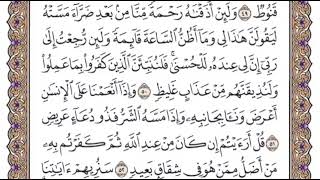 قَنُوطٌ ٤٩ وَلَئِنْ أَذَقْنَٰهُ رَحْمَةً مِّنَّا مِنۢ بَعْدِ ضَرَّآءَ مَسَّتْهُ
لَيَقُولَنَّ هَٰذَا لِى وَمَآ أَظُنُّ ٱلسَّاعَةَ قَآئِمَةً وَلَئِن رُّجِعْتُ إِلَىٰ
رَبِّىٓ إِنَّ لِى عِندَهُۥ لَلْحُسْنَىٰ فَلَنُنَبِّئَنَّ ٱلَّذِينَ كَفَرُوا۟ بِمَا عَمِلُوا۟
وَلَنُذِيقَنَّهُم مِّنْ عَذَابٍ غَلِيظٍ ٥٠ وَإِذَآ أَنْعَمْنَا عَلَى ٱلْإِنسَٰنِ
أَعْرَضَ وَنَـَٔا بِجَانِبِهِۦ وَإِذَا مَسَّهُ ٱلشَّرُّ فَذُو دُعَآءٍ عَرِيضٍ
٥١ قُلْ أَرَءَيْتُمْ إِن كَانَ مِنْ عِندِ ٱللَّهِ ثُمَّ كَفَرْتُم بِهِۦ
مَنْ أَضَلُّ مِمَّنْ هُوَ فِى شِقَاقٍۭ بَعِيدٍ ٥٢ سَنُرِيهِمْ ءَايَٰتِنَا